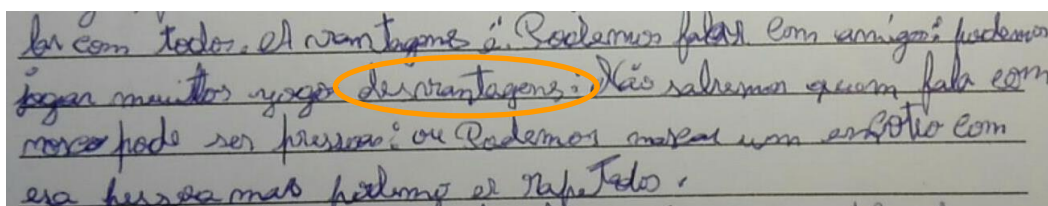 lar com todos. A vantagens é. Podemos falar com amigos: podemos
jogar muitos jogo desvantagens: Não sabemos quem fala com
nosco pode ser pressoa: ou Podemos marcar um em com
esa pessoa mas podemo er Rapetado.